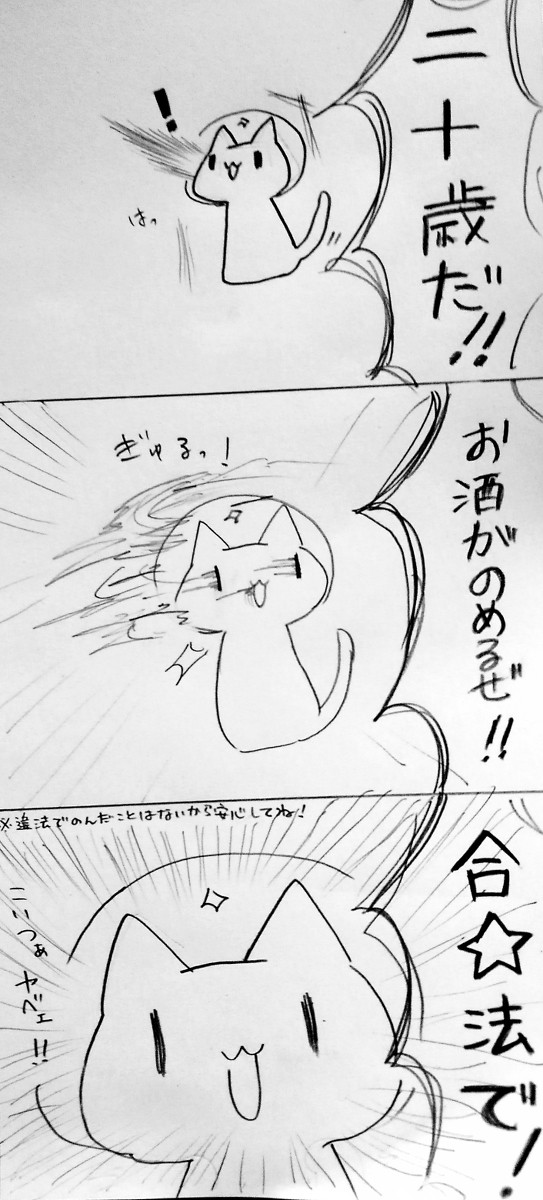 二十歳だ!!
!
はっ
お酒がのめるぜ!!
ぎゅるっ!
合☆法で!
※違法でのんだことはないから安心してね!
こいつぁヤベェ!!